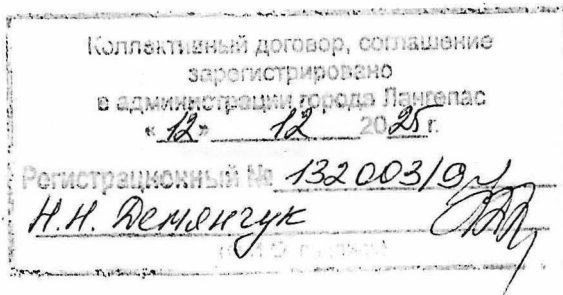 Коллективный договор, соглашение
зарегистрировано
в администрации города Лангепас
« 12 » 12 2025 г.
Регистрационный № 132003/9
Н.Н. Демянчук